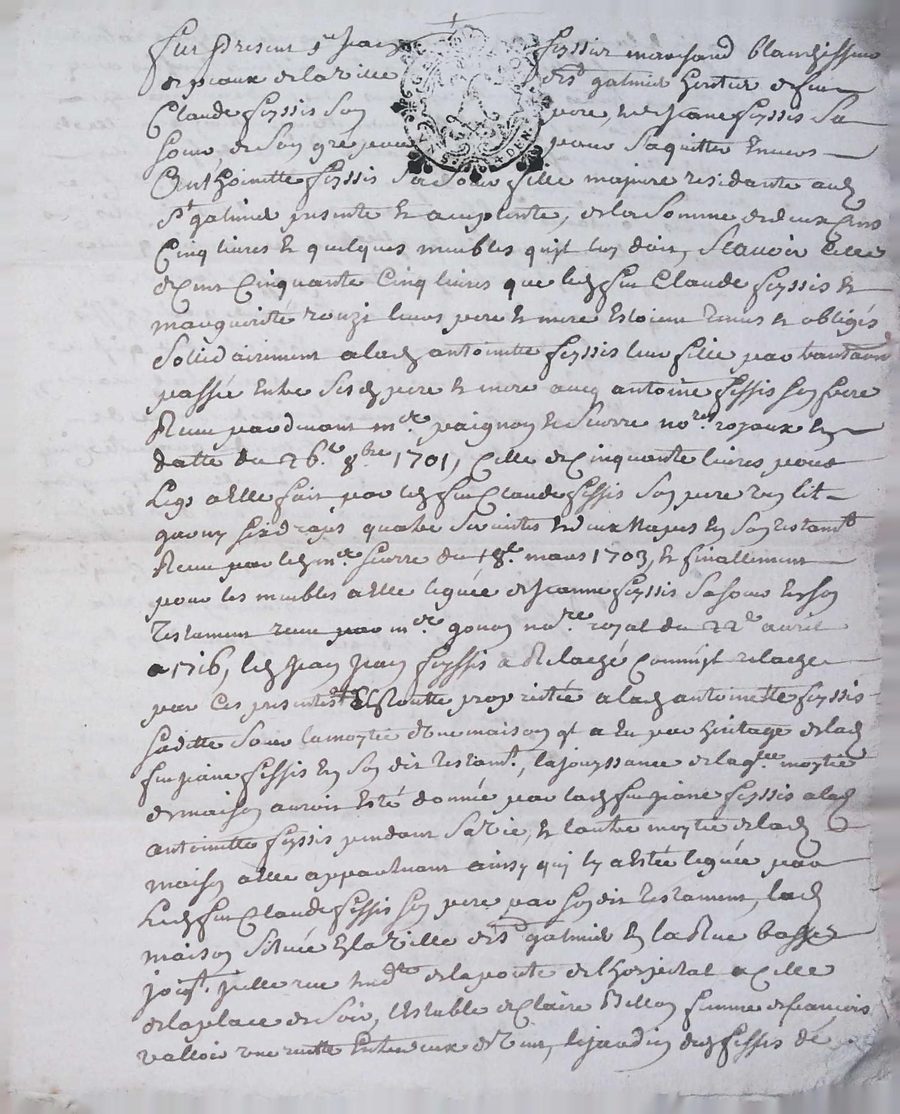 Fut present sr Jean feyssis marchand blanchisseur
de peaux de la ville de st galmier heritier de feu
Claude feyssis son pere, et de Jeane feyssis sa
soeur, de son gré pour saquitter envers
Anthoinette feyssis sa soeur fille majeure residante aud
st galmier presente et acceptante, de la somme de deux cens
Cinq livres et quelques meubles quil luy doit, scavoir celle
de Cent Cinquante Cinq livres que led feu Claude feyssis et
marguerite rouzi leurs pere et mere estoient tenus et obligés
solidairement a lad antoinette feyssis leur fille par
passée entre sesd pere et mere avec antoine feyssis son frere
Receu pardevant me paignon et Pierre nores royaux en
datte du 26e 8bre 1701, Celle de Cinquante livres pour
Legs a elle fait par led feu Claude feyssis son pere un lit
garny six draps quatre serviettes et deux napes en son testamt
Receu par led me Pierre du 18e mars 1703, et finallement
pour les meubles a elle leguée de Jeanne feyssis sa soeur en son
testament receu par me gonon nore royal du 22e avril
1716, led Jean feyssis a Relaché Comme il relache
par ces presentes en toutte proprietée a lad antoinette feyssis
saditte soeur la moytié dune maison ql a eu par heritage de lad
feu Jeane feyssis en son dit testamt, la jouyssance de laqlle moytié
de maison auroit esté donnée par lad feu Jeane feyssis a lad
antoinette feyssis pendant sa vie, et lautre moytié de lad
maison a elle appartenant ainsy quil luy a estée leguée par
Led feu Claude feyssis son pere par son dit testament, lad
maison située en la ville de st galmier en la Rue basse
joigt. jcelle rue tendte de la porte de lhospital a Celle
de la place de soir, lestable de Claire Billon femme de francois
valloir une ruette entre deux de vent, le jardin desd feyssis de